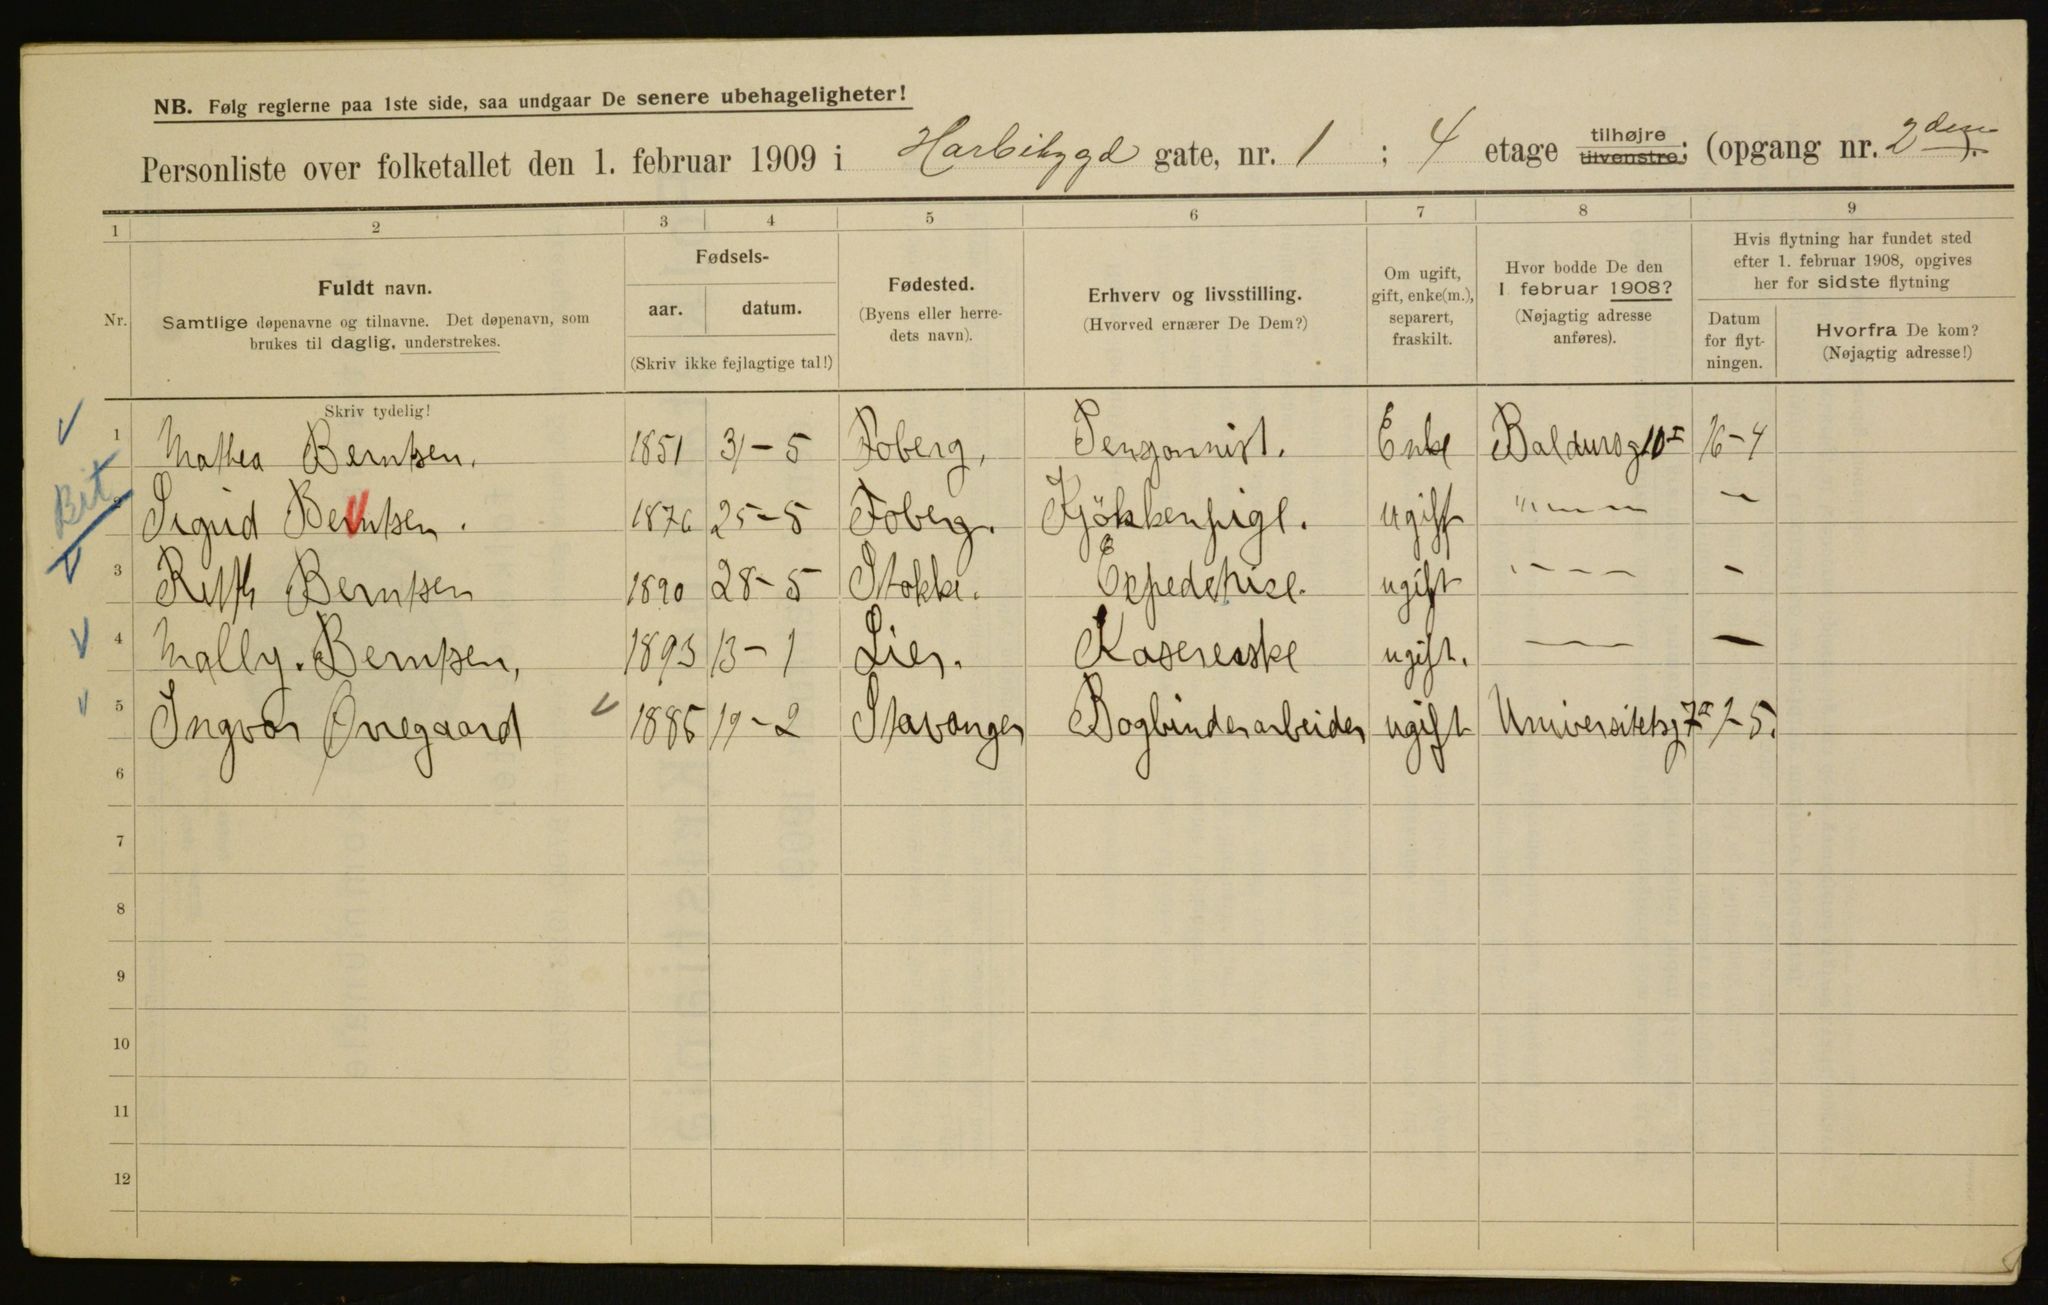 NB. Følg reglerne paa 1ste side, saa undgaar De senere ubehageligheter!
Personliste over folketallet den 1. februar 1909 i Harbitzgd gate, nr. 1 ; 4 etage tilhøjre tilvenstre; (opgang nr. 2den).
1 2 3 4 5 6 7 8 9
Nr. Fuldt navn. Samtlige døpenavne og tilnavne. Det døpenavn, som brukes til daglig, understrekes.
Fødsels- aar. datum. (Skriv ikke fejlagtige tal!)
Fødested. (Byens eller herredets navn).
Erhverv og livsstilling. (Hvorved ernærer De Dem?)
Om ugift, gift, enke(m.), separert, fraskilt.
Hvor bodde De den 1 februar 1908? (Nøjagtig adresse anføres).
Hvis flytning har fundet sted efter 1. februar 1908, opgives her for sidste flytning
Datum for flytningen. Hvorfra De kom? (Nøjagtig adresse!)
Skriv tydelig!
1 Mathea Berntsen. 1851 31-5 Foberg. Pensjonnist. Enke Baldursg 10 I 16-4
Bit
2 Sigrid Berntsen. 1876 25-5 Foberg. Kjökkenpige. ugift " — — — —
3 Berntsen 1890 28-5 Stokke. Expeditrise. ugift " — — — —
4 Mally. Berntsen, 1893 13-1 Lier. Kasererske ugift. — — —
5 Ingvar Øvregaard 1885 19-2 Stavanger Bogbinderarbeider ugift Universitetsg 7 1-5.
6
7
8
9
10
11
12